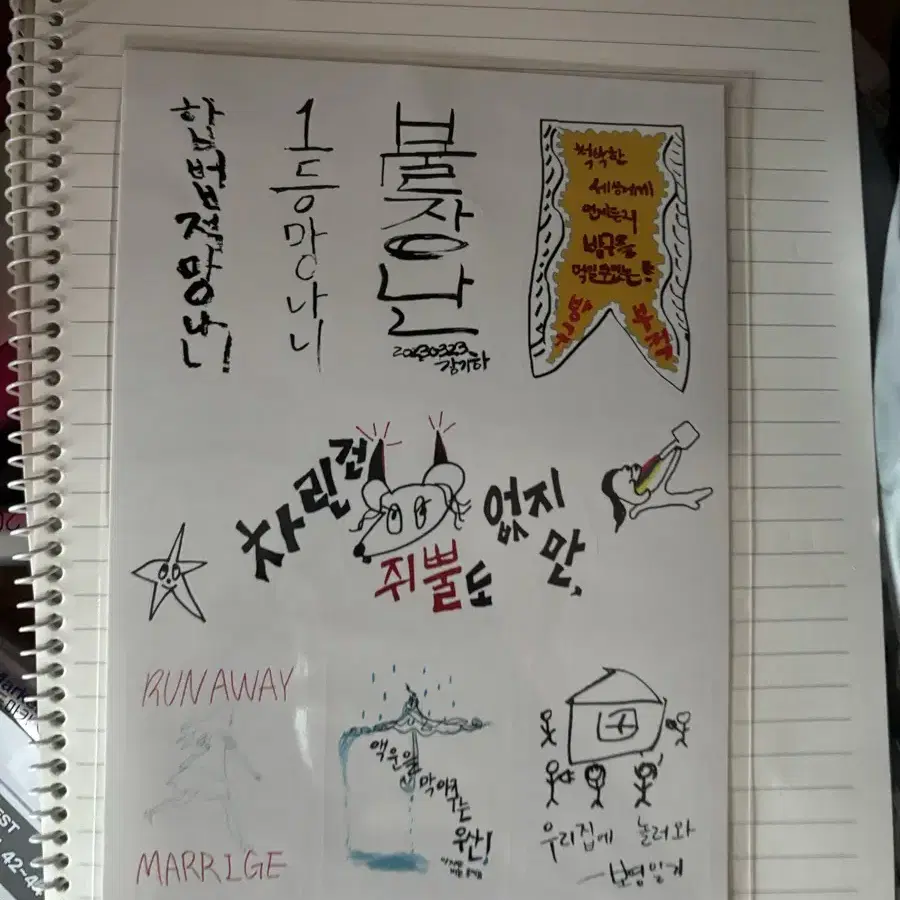 합법적망나니
1등망나니
불장난
20230323
강기하
척박한
세상에게
언제든지
빵꾸를
먹일 수 있는
부적
차린건
쥐뿔도
없지
만,
RUNAWAY
MARRIGE
액운을
막아주는
우산!
우리집에 놀러와
보영일기